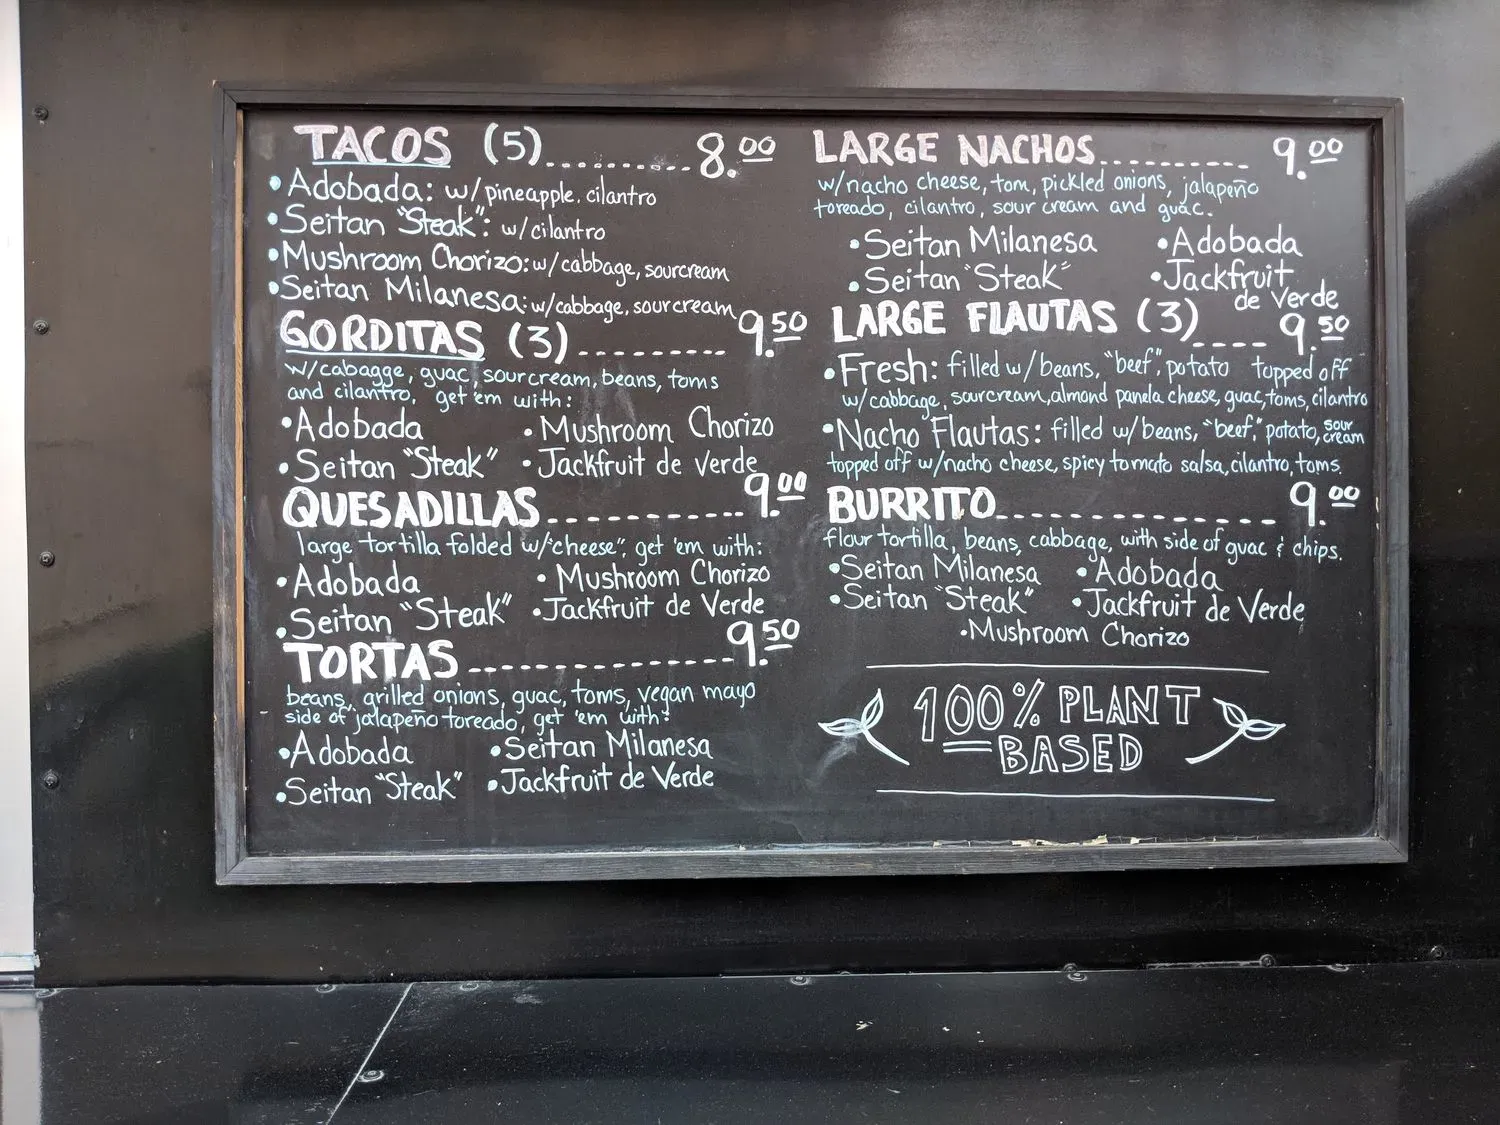 TACOS (5)........... 8.00
• Adobada: w/pineapple, cilantro
• Seitan "Steak": w/cilantro
• Mushroom Chorizo: w/cabbage, sourcream
• Seitan Milanesa: w/cabbage, sourcream
GORDITAS (3)--------- 9.50
w/cabagge, guac, sourcream, beans, toms
and cilantro, get 'em with:
• Adobada • Mushroom Chorizo
• Seitan "Steak" • Jackfruit de Verde
QUESADILLAS------------ 9.00
large tortilla folded w/"cheese", get 'em with:
• Adobada • Mushroom Chorizo
• Seitan "Steak" • Jackfruit de Verde
TORTAS---------------- 9.50
beans, grilled onions, guac, toms, vegan mayo
side of jalapeño toreado, get 'em with:
• Adobada • Seitan Milanesa
• Seitan "Steak" • Jackfruit de Verde
LARGE NACHOS---------- 9.00
w/nacho cheese, tom, pickled onions, jalapeño
toreado, cilantro, sour cream and guac.
• Seitan Milanesa • Adobada
• Seitan "Steak" • Jackfruit
de Verde
LARGE FLAUTAS (3)---- 9.50
• Fresh: filled w/beans, "beef", potato topped off
w/cabbage, sourcream, almond panela cheese, guac, toms, cilantro
• Nacho Flautas: filled w/beans, "beef", potato, sour cream
topped off w/nacho cheese, spicy tomato salsa, cilantro, toms.
BURRITO-------------- 9.00
flour tortilla, beans, cabbage, with side of guac & chips.
• Seitan Milanesa • Adobada
• Seitan "Steak" • Jackfruit de Verde
• Mushroom Chorizo
100% PLANT
BASED